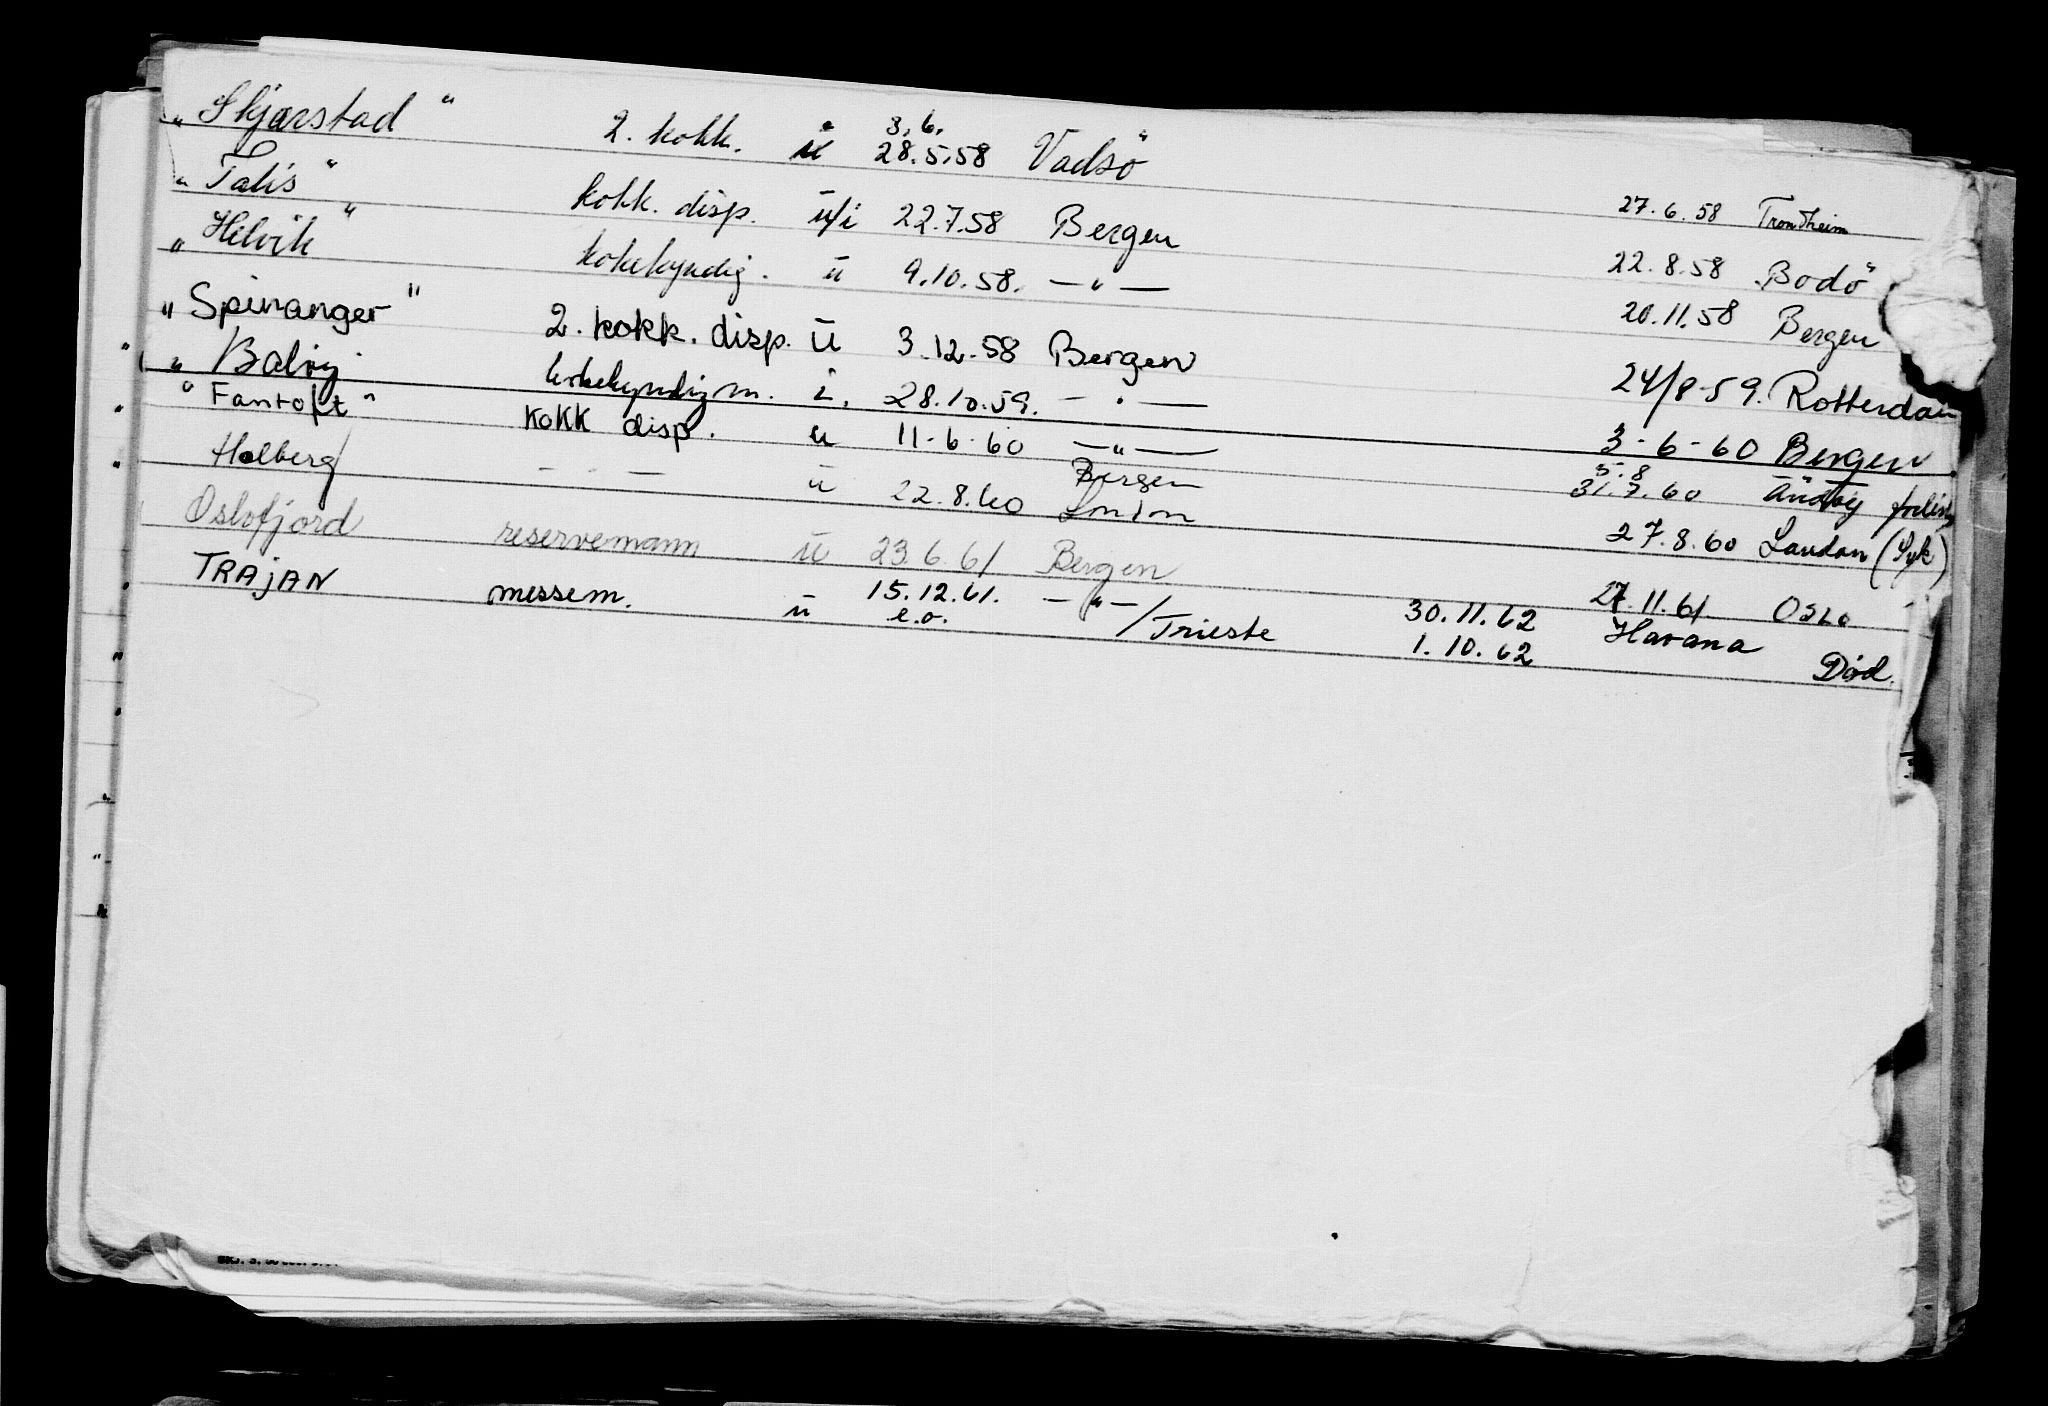 "Skjærstad" 2. kokk. u 3.6. 28.5.58 Vadsö 27.6.58 Trondheim
"Talis" kokk. disp. u/i 22.7.58 Bergen 22.8.58 Bodö
"Helvik" kokekyndig. u 9.10.58. —"— 20.11.58 Bergen
"Spinanger" 2. kokk. disp. u 3.12.58 Bergen 24/8-59. Rotterdam
" kokekyndig m. i. 28.10.59. —"— 3-6-60 Bergen
"Fantoft" KOKK disp. u 11-6-60 —"— 5.8 31.7.60
Holberg — " — u 22.8.60 Bergen London 27.8.60 London (Syk)
Oslofjord reservemann u 23.6.61 Bergen 27.11.61. OSLO
TRAJAN messem. u 15.12.61. —"—/Trieste 30.11.62 Havana
e.o. 1.10.62 Död.